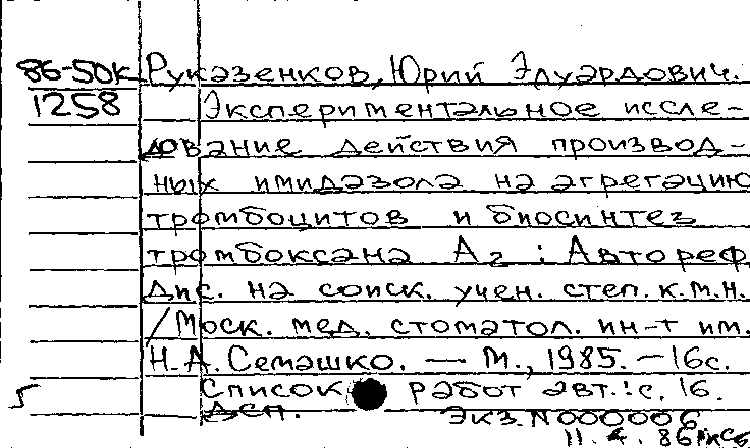 86-50К Руказенков, Юрий Эдуардович.
1258 Экспериментальное иссле-
дование действия производ-
ных имидазола на агрегацию
тромбоцитов и биосинтез
тромбоксана А2 : Автореф.
Дис. на соиск. учен. степ. к.м.н.
/Моск. мед. стоматол. ин-т им.
Н.А. Семашко. — М., 1985. — 16с.
Список работ авт.: с. 16.
Дсп. Экз. N000006